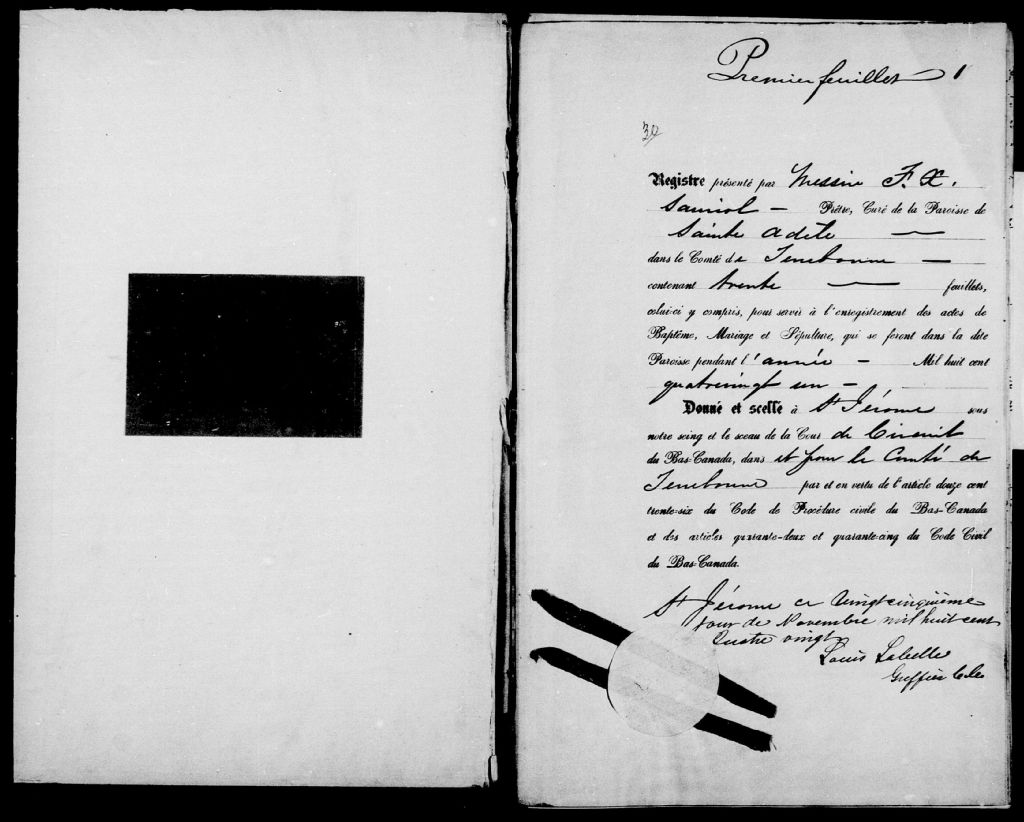 Premier feuillet 1
30
Registre présenté par Messire F. X.
Sauriol — Prêtre, Curé de la Paroisse de
Sainte Adèle —
dans le Comté de Terrebonne —
contenant trente — feuillets,
celui-ci y compris, pour servir à l'enregistrement des actes de
Baptême, Mariage et Sépulture, qui se feront dans la dite
Paroisse pendant l'année — Mil huit cent
quatrevingt un —
Donné et scellé à St Jérome sous
notre seing et le sceau de la Cour de Circuit
du Bas-Canada, dans et pour le Comté de
Terrebonne par et en vertu de l'article douze cent
trente-six du Code de Procédure civile du Bas-Canada
et des articles quarante-deux et quarante-cinq du Code Civil
du Bas-Canada.
St Jérome ce vingtcinquième
jour de Novembre mil huit cent
quatre vingt
Louis Labelle
Greffier